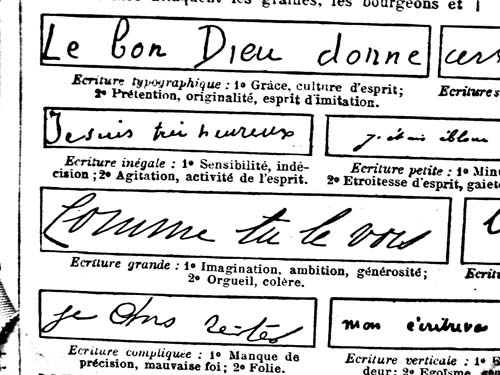 les graines, les bourgeons et
Le bon Dieu donne
Ecriture typographique : 1º Grâce, culture d'esprit;
2º Prétention, originalité, esprit d'imitation.
Ecriture
Je suis très heureux
Ecriture inégale : 1º Sensibilité, indé-
cision ; 2º Agitation, activité de l'esprit.
Ecriture petite : 1º
2º Etroitesse d'esprit,
Comme tu le vois
Ecriture grande : 1º Imagination, ambition, générosité;
2º Orgueil, colère.
je
Ecriture compliquée : 1º Manque de
précision, mauvaise foi; 2º Folie.
mon écriture
Ecriture verticale : 1º
deur: 2º Egoïsme,